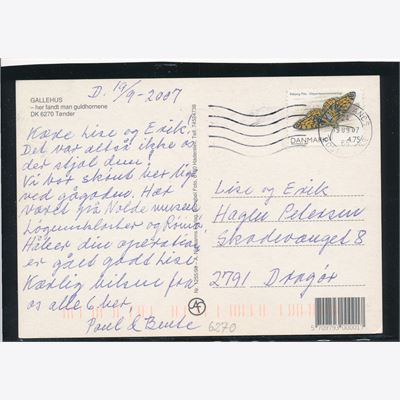 GALLEHUS
– her fandt man guldhornene
DK 6270 Tønder
D. 19/9-2007
Kære Lise og Erik.
Det var altså ikke os
der stjal dem!
Vi bor skønt her lige
ved gågaden. Har
været på Nolde museum
Løgumkloster og Rømø.
Håber din operation
er gået godt Lise.
Kærlig hilsen fra
os alle 6 her.
Poul & Bente
6270
DANMARK
4.75
19.09.07
Lise og Erik
Hagen Petersen
Skodevanget 8
2791 Dragør
5 709793 000001